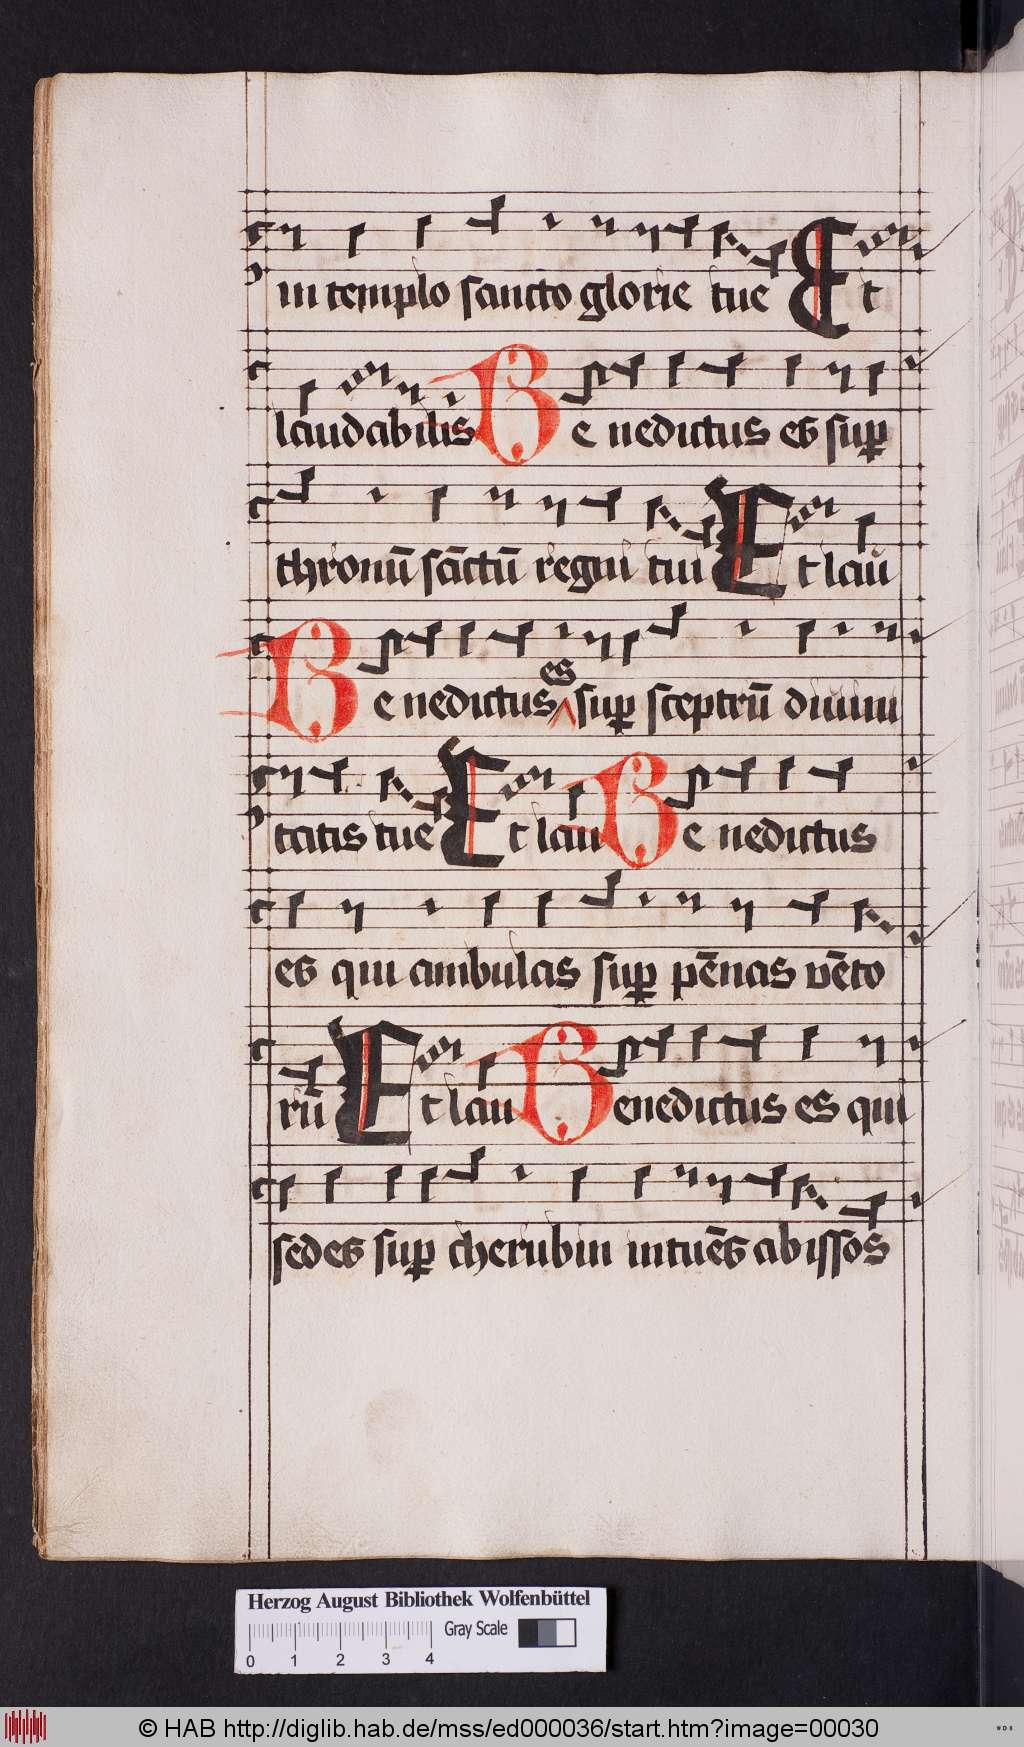 in templo sancto glorie tue Et
laudabilis Benedictus es sup̱
thronū sāctū regni tui Et lau
Benedictus es sup̱ sceptrū diuini
tatis tue Et lau Benedictus
es qui ambulas sup̱ pēnas vēto
rū Et lau Benedictus es qui
sedes sup̱ cherubin intuēs abissos
Herzog August Bibliothek Wolfenbüttel
0 1 2 3 4 Gray Scale
© HAB http://diglib.hab.de/mss/ed000036/start.htm?image=00030